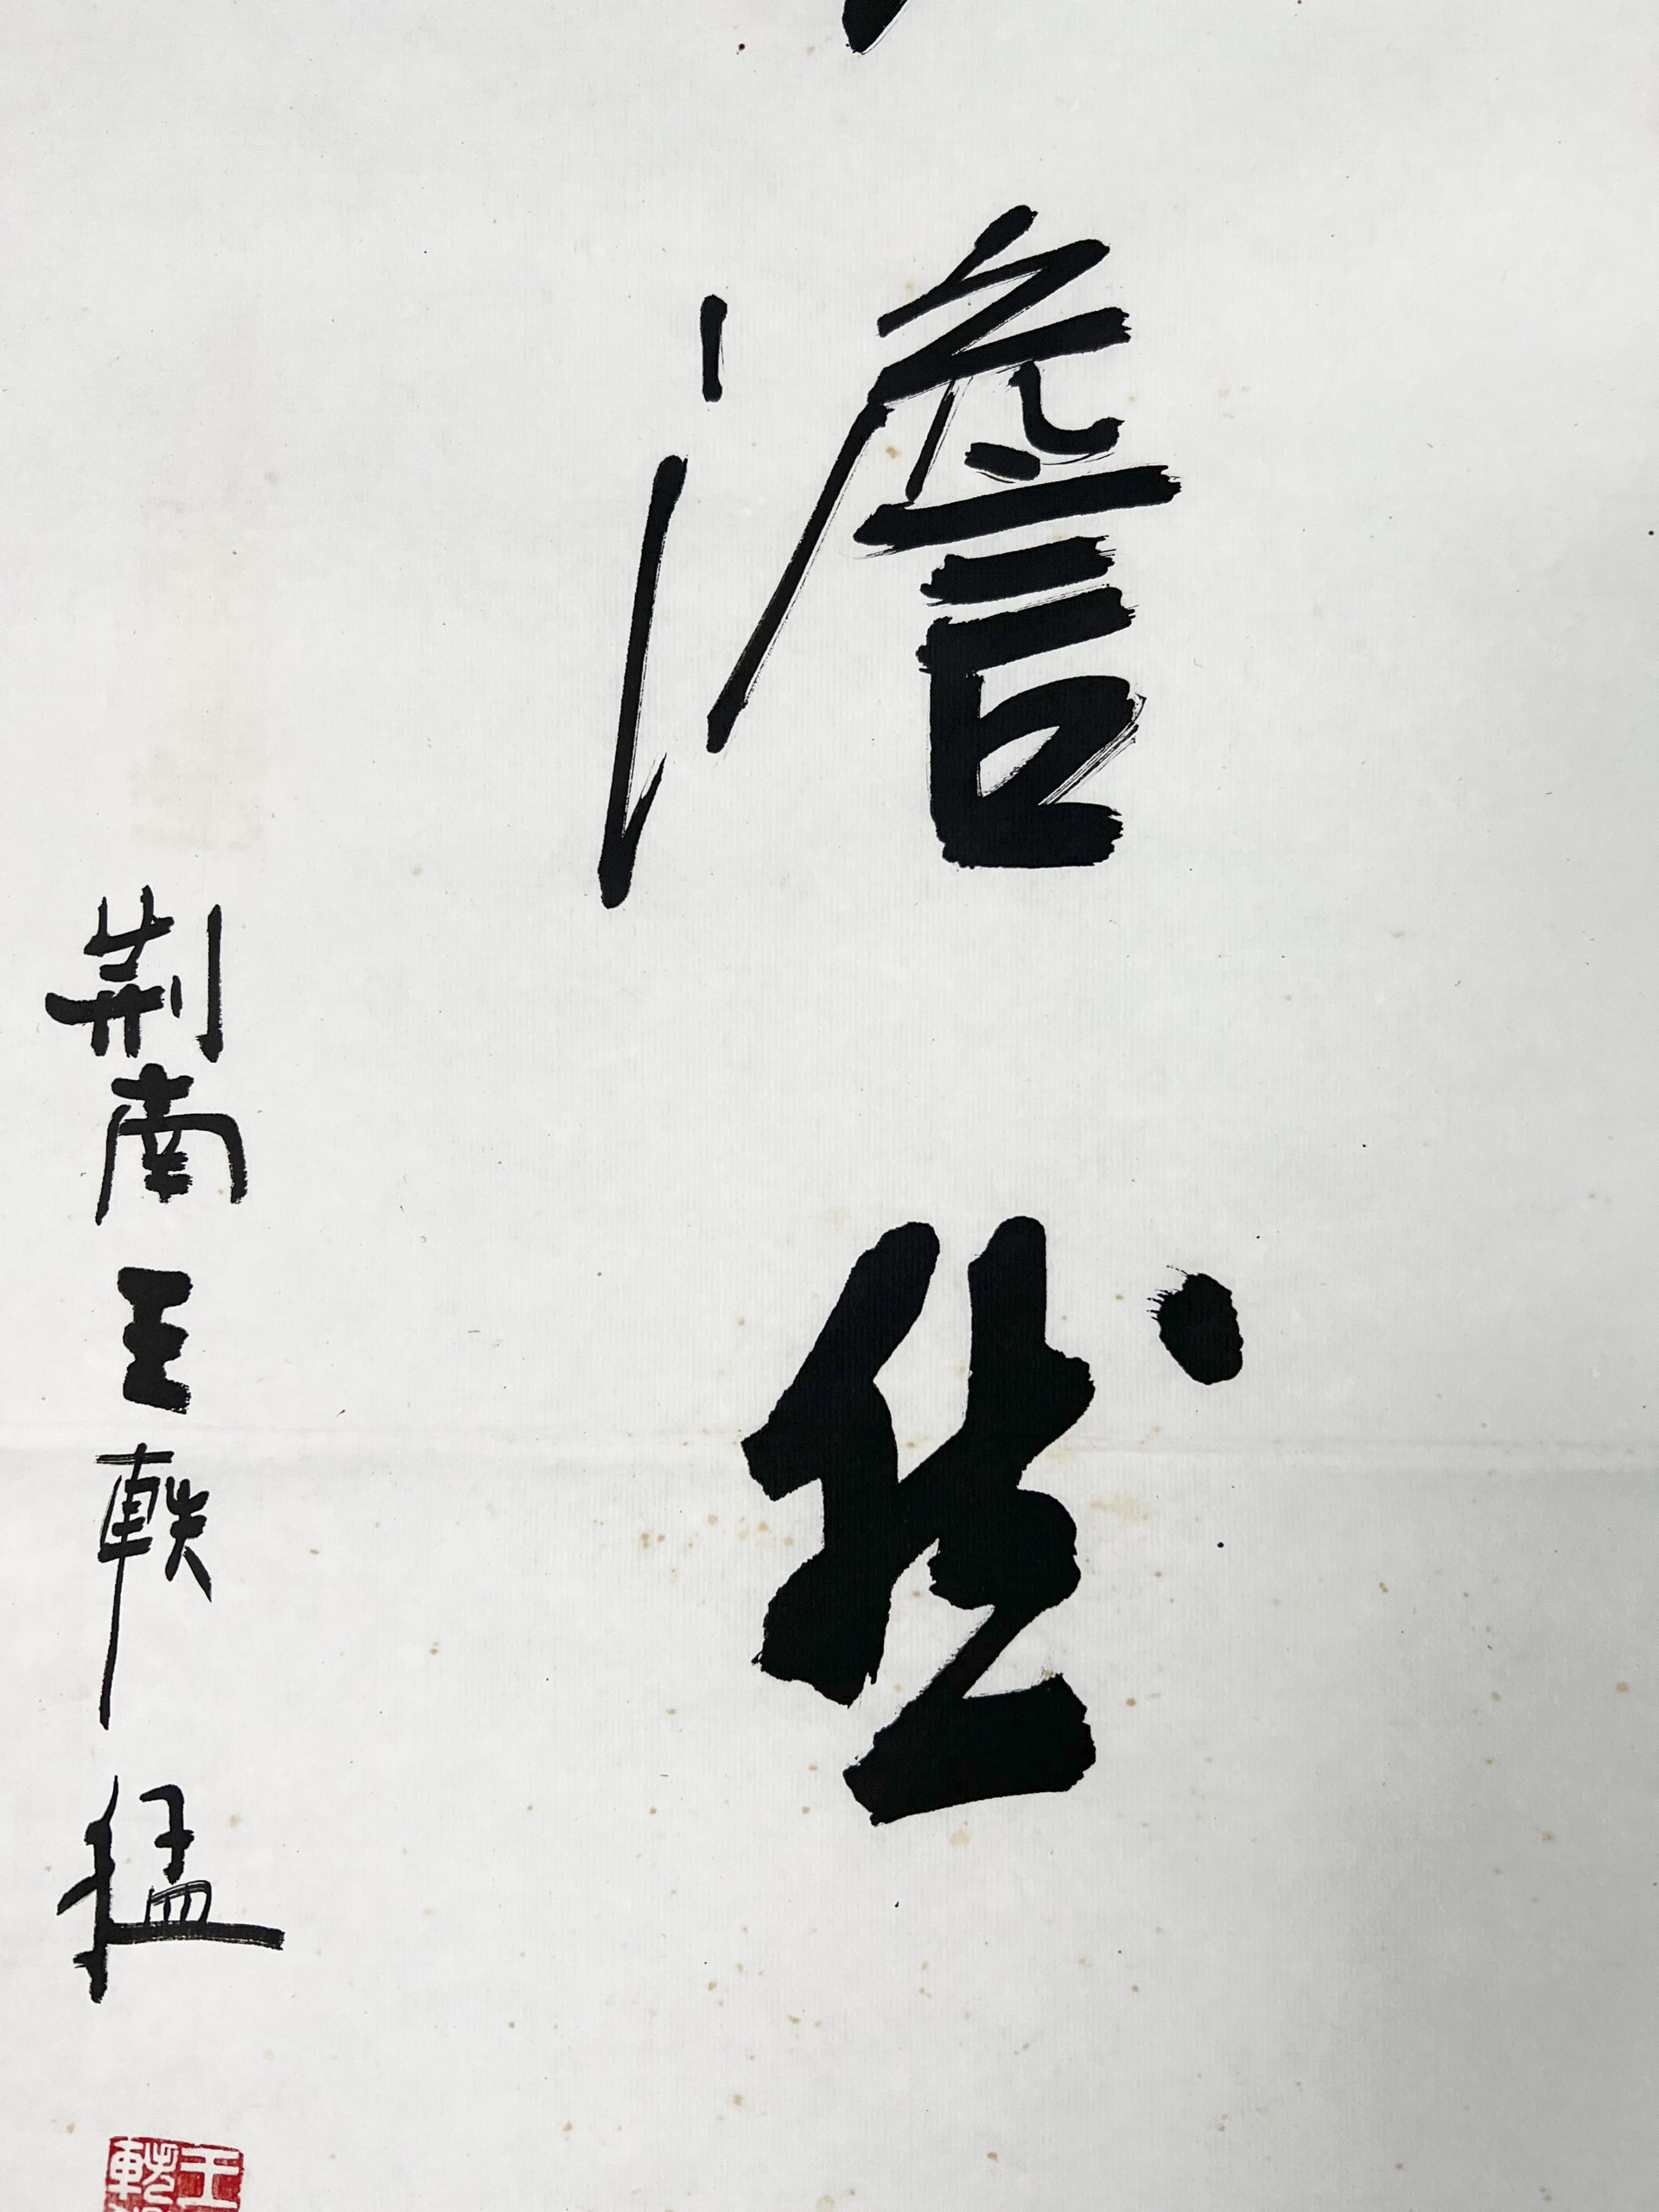 澹然
荆南王軼猛
王軼